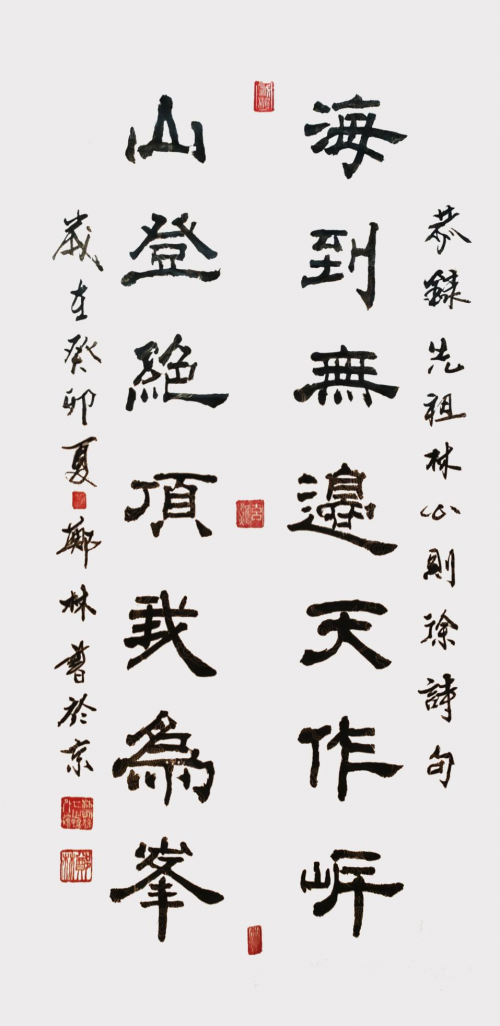 恭錄先祖林公則徐詩句
海到無邊天作岸
山登絶頂我為峯
歲在癸卯夏鄭林書於京